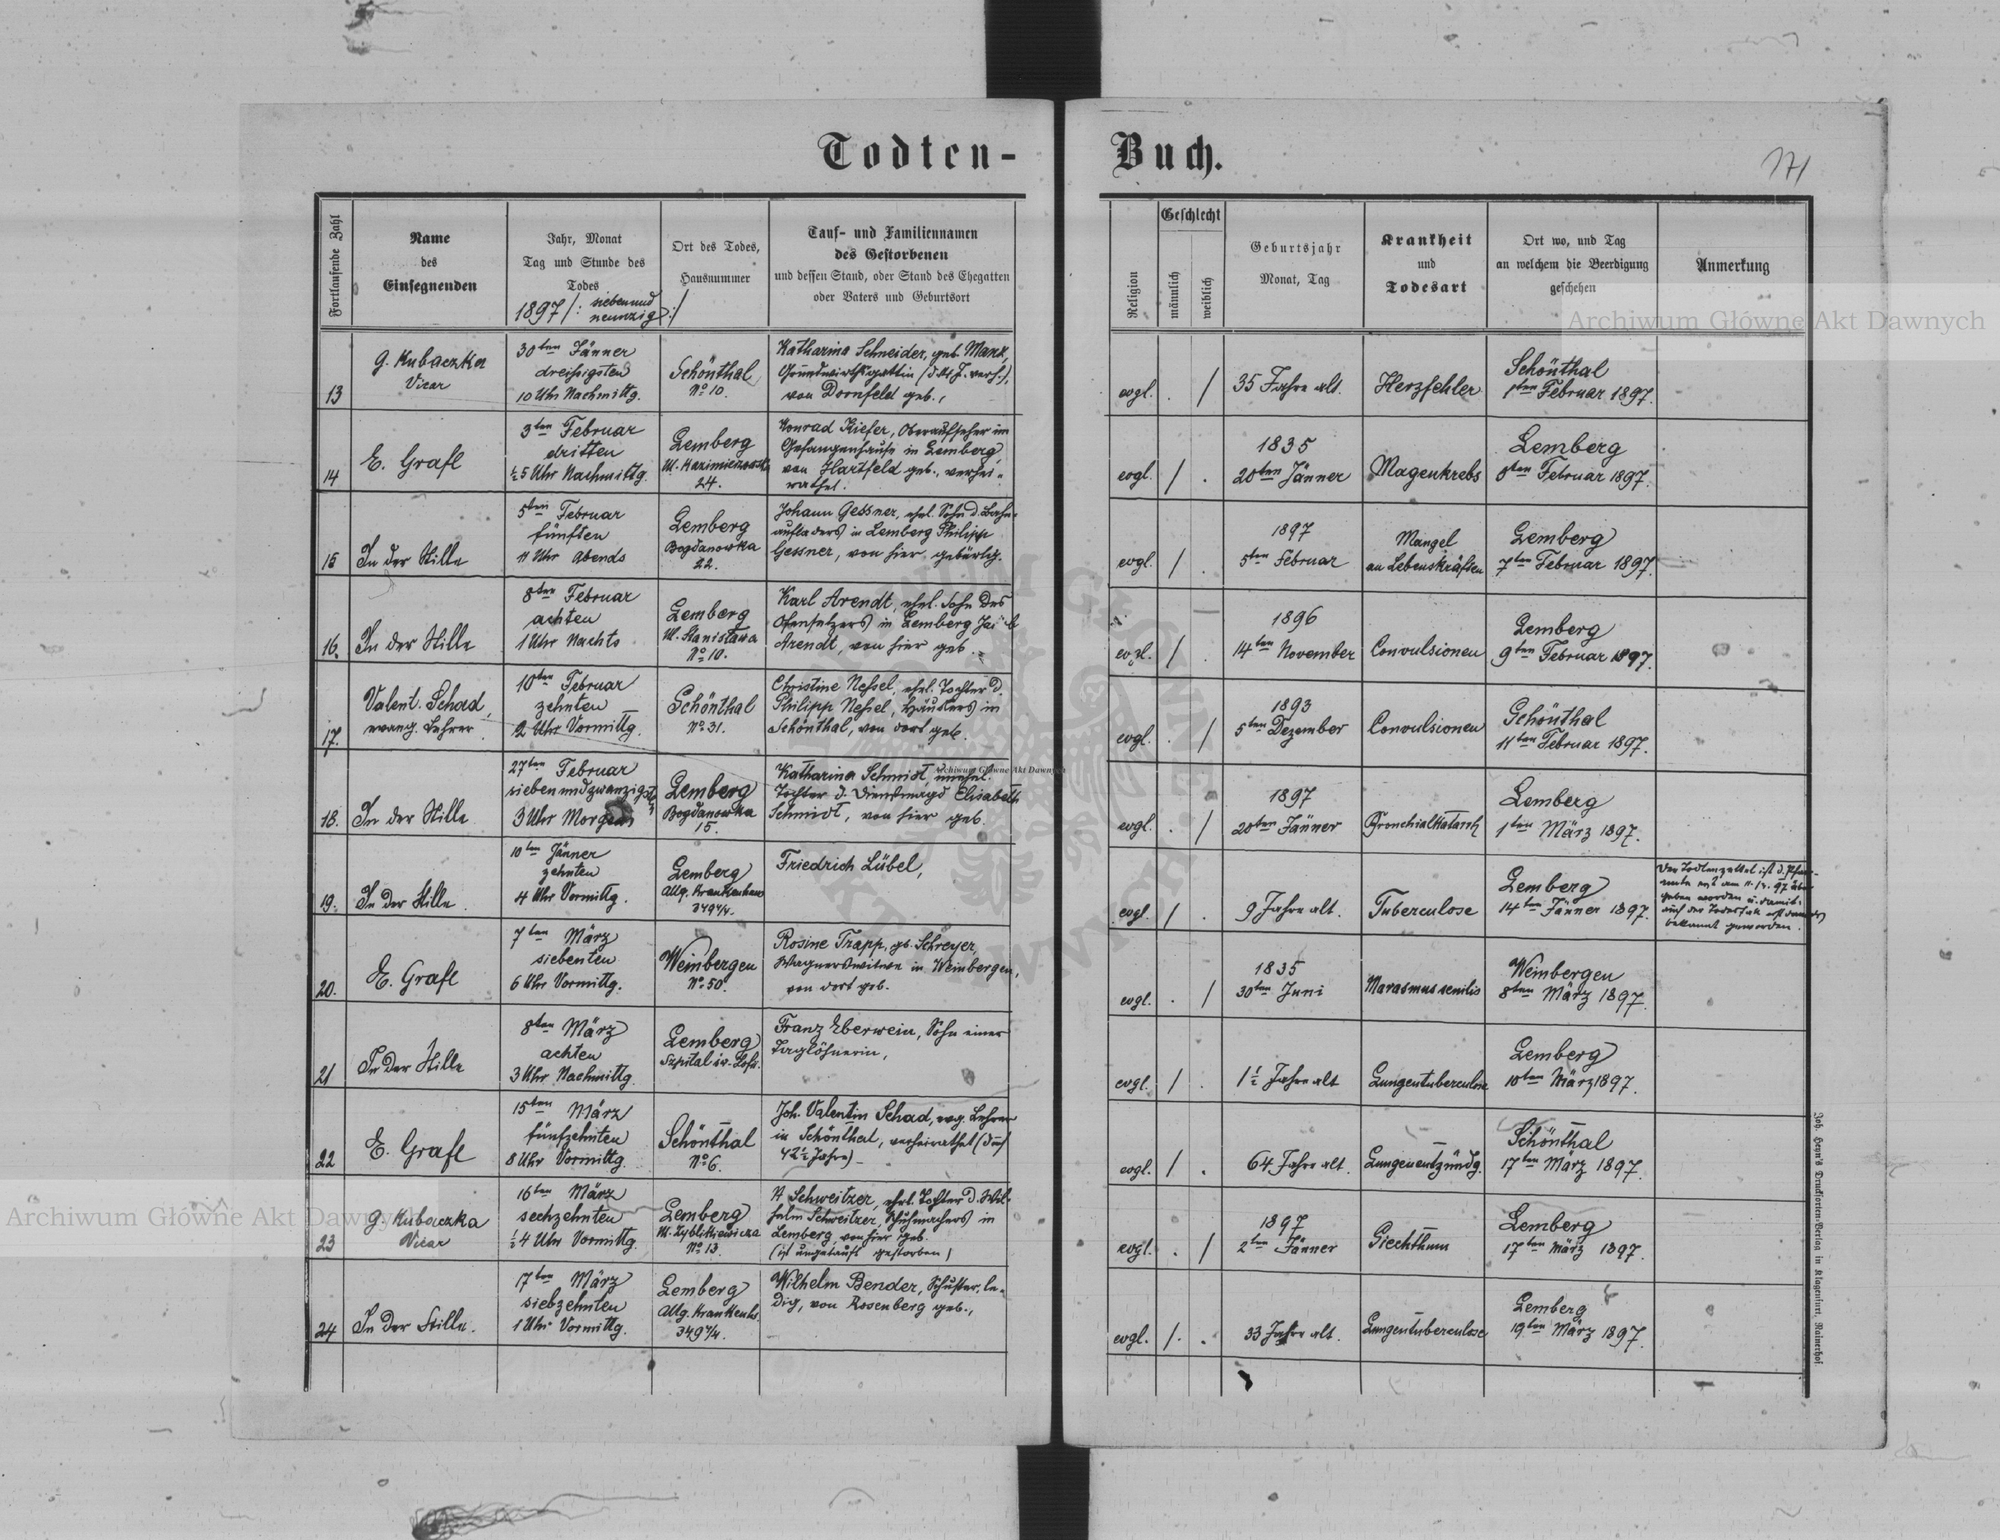 Todten-
Buch.
171
Fortlaufende Zahl
Name
des
Einsegnenden
Jahr, Monat
Tag und Stunde des
Todes
1897 /: sieben und
neunzig :/
Ort des Todes,
Hausnummer
Tauf- und Familiennamen
des Gestorbenen
und dessen Stand, oder Stand des Ehegatten
oder Vaters und Geburtsort
Religion
Geschlecht
männlich
weiblich
Geburtsjahr
Monat, Tag
Krankheit
und
Todesart
Ort wo, und Tag
an welchem die Beerdigung
geschehen
Anmerkung
13
G. Kubaczka
Vicar
30ten Jänner
dreißigsten
10 Uhr Nachmittg.
Schönthal
No 10.
Katharina Schneider, geb. Manz,
Grundwirthsgattin
von Dornfeld geb.,
evgl. . /
35 Jahre alt.
Herzfehler
Schönthal
1ten Februar 1897.
14
E. Grafl
3ten Februar
dritten
½5 Uhr Nachmittg.
Lemberg
Ul. Kazimierzowsk
24.
Konrad Kiefer, Oberaufseher im
Gefangenhause in Lemberg,
von Hartfeld geb., verhei-
rathet.
evgl. / .
1835
20ten Jänner
Magenkrebs
Lemberg
Februar 1897.
15
In der Stille
5ten Februar
fünften
11 Uhr Abends
Lemberg
Bogdanowka
22.
Johann Gessner, ehel. Sohn d. Bahn-
aufladers in Lemberg Philipp
Gessner, von hier gebürtig.
evgl. / .
1897
5ten Februar
Mangel
an Lebenskräften
Lemberg
7ten Februar 1897.
16.
In der Stille
8ten Februar
achten
1 Uhr Nachts
Lemberg
Ul. Stanisława
No 10.
Karl Arendt, ehel. Sohn des
Ofensetzers in Lemberg
Arendt, von hier geb.
evgl. / .
1896
14ten November
Convulsionen
Lemberg
9ten Februar 1897.
17.
Valent. Schad,
evang. Lehrer
10ten Februar
zehnten
2 Uhr Vormittg.
Schönthal
No 31.
Christine Neßel, ehel. Tochter d.
Philipp Neßel, Häuslers in
Schönthal, von dort geb.
evgl. . /
1893
5ten Dezember
Convulsionen
Schönthal
11ten Februar 1897.
18.
In der Stille
27ten Februar
siebenundzwanzigst
3 Uhr Morgens
Lemberg
Bogdanowka
15.
Katharina Schmidt, unehel.
Tochter d. Dienstmagd Elisabeth
Schmidt, von hier geb.
evgl. . /
1897
20ten Jänner
Bronchialkatarrh
Lemberg
1ten März 1897.
19.
In der Stille.
10ten Jänner
zehnten
4 Uhr Vormittg.
Lemberg
Allg. Krankenhaus
349 4/4.
Friedrich Lübel,
evgl. / .
9 Jahre alt.
Tuberculose
Lemberg
14ten Jänner 1897.
Der Todtenzettel ist d. Pfarr-
amte erst am 97 über-
geben worden u. damit
auch der Todesfall erst
bekannt geworden.
20.
E. Grafl
7ten März
siebenten
6 Uhr Vormittg.
Weinbergen
No 50.
Rosine Trapp, gb. Schreyer,
Wagnerswitwe in Weinbergen,
von dort geb.
evgl. . /
1835
30ten Juni
Marasmus senilis
Weinbergen
8ten März 1897.
21
In der Stille
8ten März
achten
3 Uhr Nachmittg.
Lemberg
Szpital św. Zofii.
Franz Eberwein, Sohn einer
Taglöhnerin,
evgl. / .
1½ Jahre alt
Lungentuberculose
Lemberg
10ten März 1897.
22
E. Grafl
15ten März
fünfzehnten
8 Uhr Vormittg.
Schönthal
No 6.
Joh. Valentin Schad, evg. Lehrer
in Schönthal, verheirathet
42½ Jahre)
evgl. / .
64 Jahre alt.
Lungenentzündg.
Schönthal
17ten März 1897.
23
G. Kubaczka
Vicar
16ten März
sechzehnten
½4 Uhr Vormittg.
Lemberg
Ul. Zyblikiewicza
No 13.
N. Schweitzer, ehel. Tochter d. Wil-
helm Schweitzer, Schuhmachers in
Lemberg, von hier geb.
(ist ungetauft gestorben)
evgl. . /
1897
2ten Jänner
Siechthum
Lemberg
17ten März 1897.
24
In der Stille.
17ten März
siebzehnten
1 Uhr Vormittg.
Lemberg
Allg. Krankenhs.
349 4/4.
Wilhelm Bender, Schuster, le-
dig, von Rosenberg geb.,
evgl. / .
33 Jahre alt.
Lungentuberculose
Lemberg
19ten März 1897.
Joh. Heyn's Drucksorten-Verlag in Klagenfurt, Rainerhof.
Archiwum Główne Akt Dawnych
Archiwum Główne Akt Dawnych
Archiwum Główne Akt Dawnych